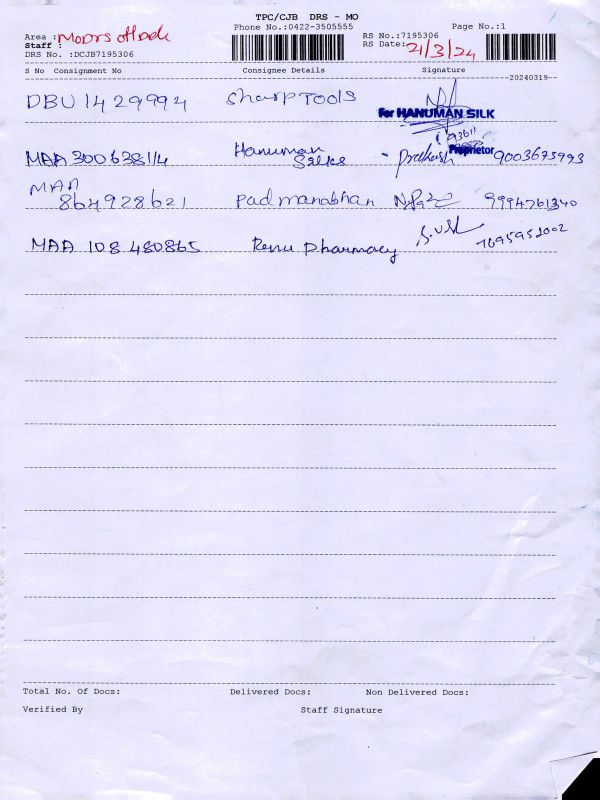 TPC/CJB DRS - MO
Phone No.:0422-3505555
Page No.:1
Area :
Staff :
DRS No. :DCJB7195306
RS No.:7195306
RS Date: 21/3/24
S No Consignment No Consignee Details Signature
20240319
DBU 1429994 Sharp Tools
For HANUMAN SILK
MAA 300638114 Hanuman Silks Prakash Proprietor 9003675993
MAA
864928621 Padmanabhan 9994761340
MAA 108 480865 Renu Pharmacy S.V 7695952002
Total No. Of Docs: Delivered Docs: Non Delivered Docs:
Verified By Staff Signature